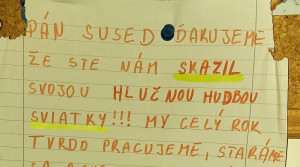 PÁN SUSED ĎAKUJEME
ŽE STE NÁM SKAZIL
SVOJOU HLUČNOU HUDBOU
SVIATKY!!! MY CELÝ ROK
TVRDO PRACUJEME, STARÁME